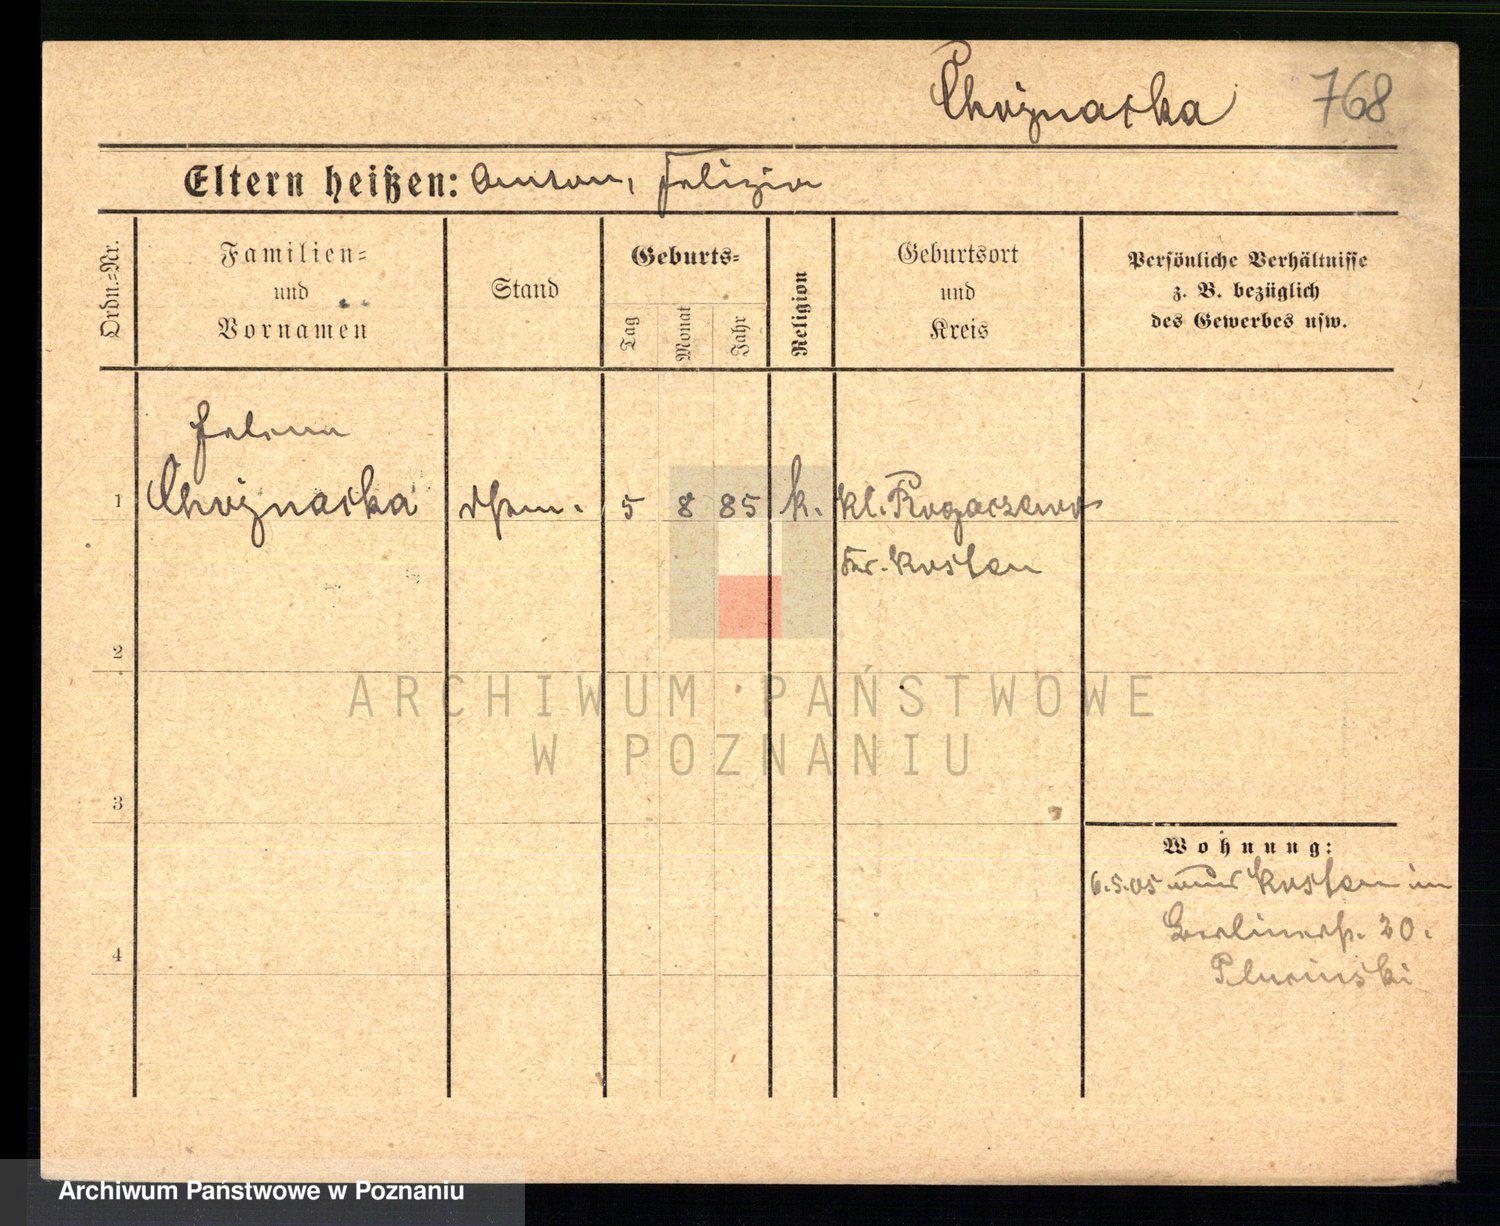 Choynacka 768
Eltern heißen: Anton, Felizia
Ordn.=Nr.
Familien=
und
Vornamen
Stand
Geburts=
Tag
Monat
Jahr
Religion
Geburtsort
und
Kreis
Persönliche Verhältnisse
z. B. bezüglich
des Gewerbes usw.
Helena
1 Choynacka 5 8 85 k. Kl. Rogaczewo
Kr. Kosten
2
ARCHIWUM PAŃSTWOWE
W POZNANIU
3
Wohnung:
6.5.05 Kosten in
4 Berlinerstr. 20.
Plucinski
Archiwum Państwowe w Poznaniu